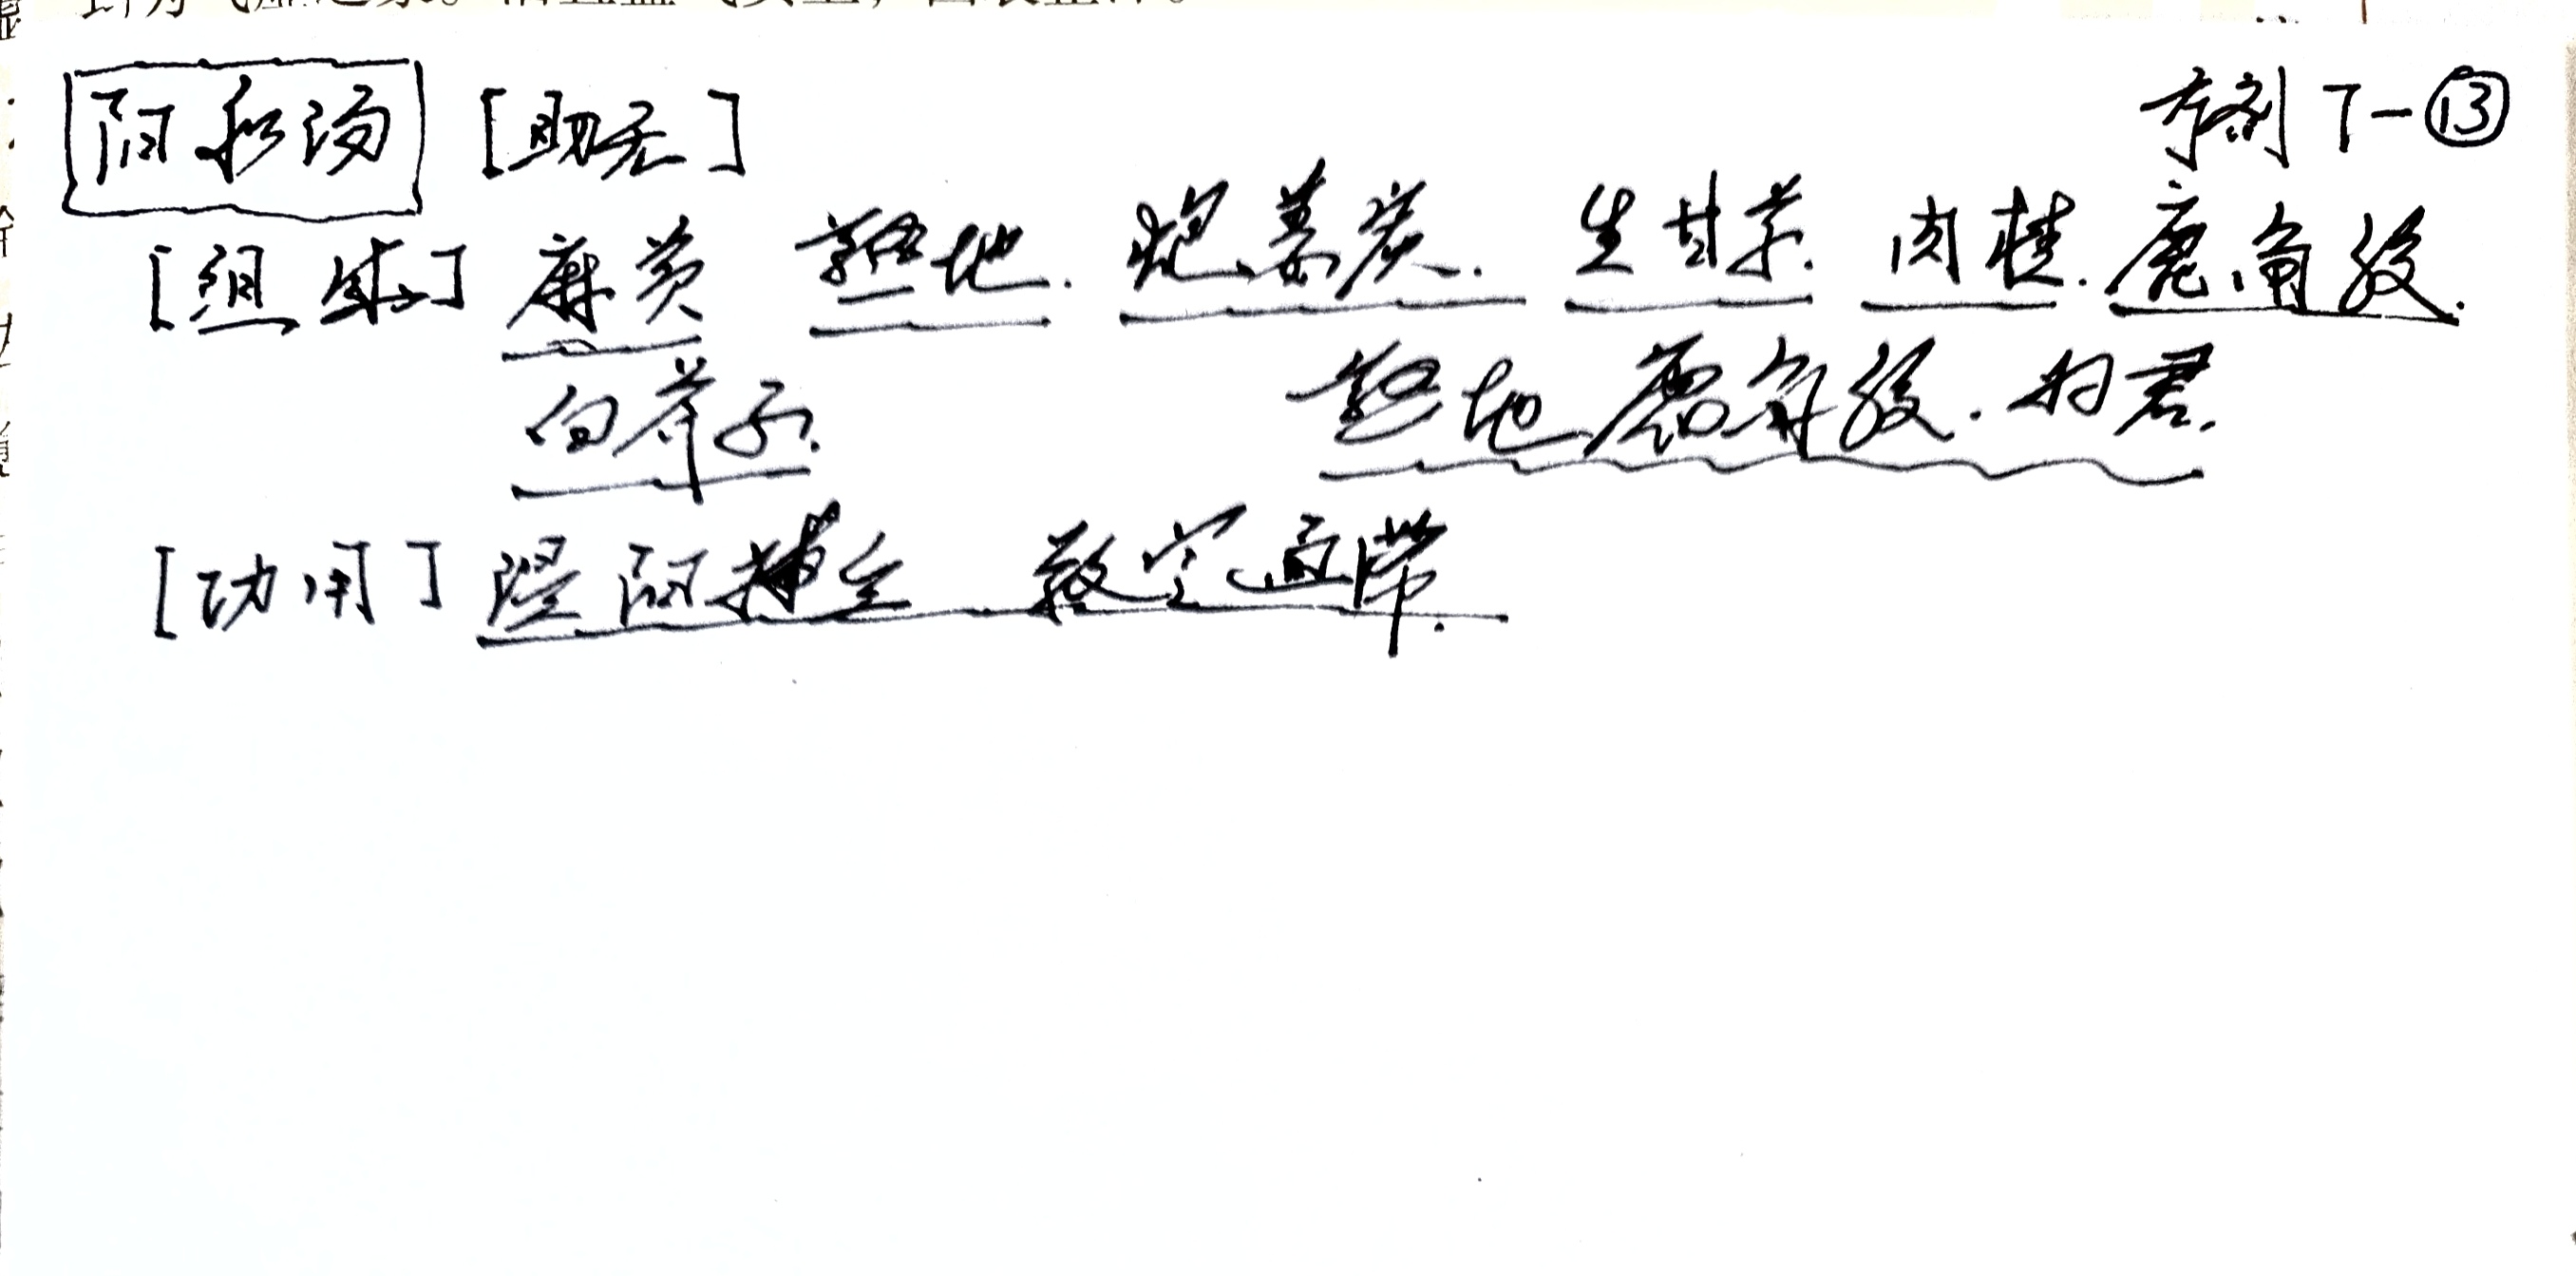 阳和汤 [助无] 方剂 T-⑬
[组成] 麻黄 熟地. 炮姜炭. 生甘草. 肉桂. 鹿角胶.
白芥子. 熟地鹿角胶. 为君.
[功用] 温阳補血 散寒通滞.